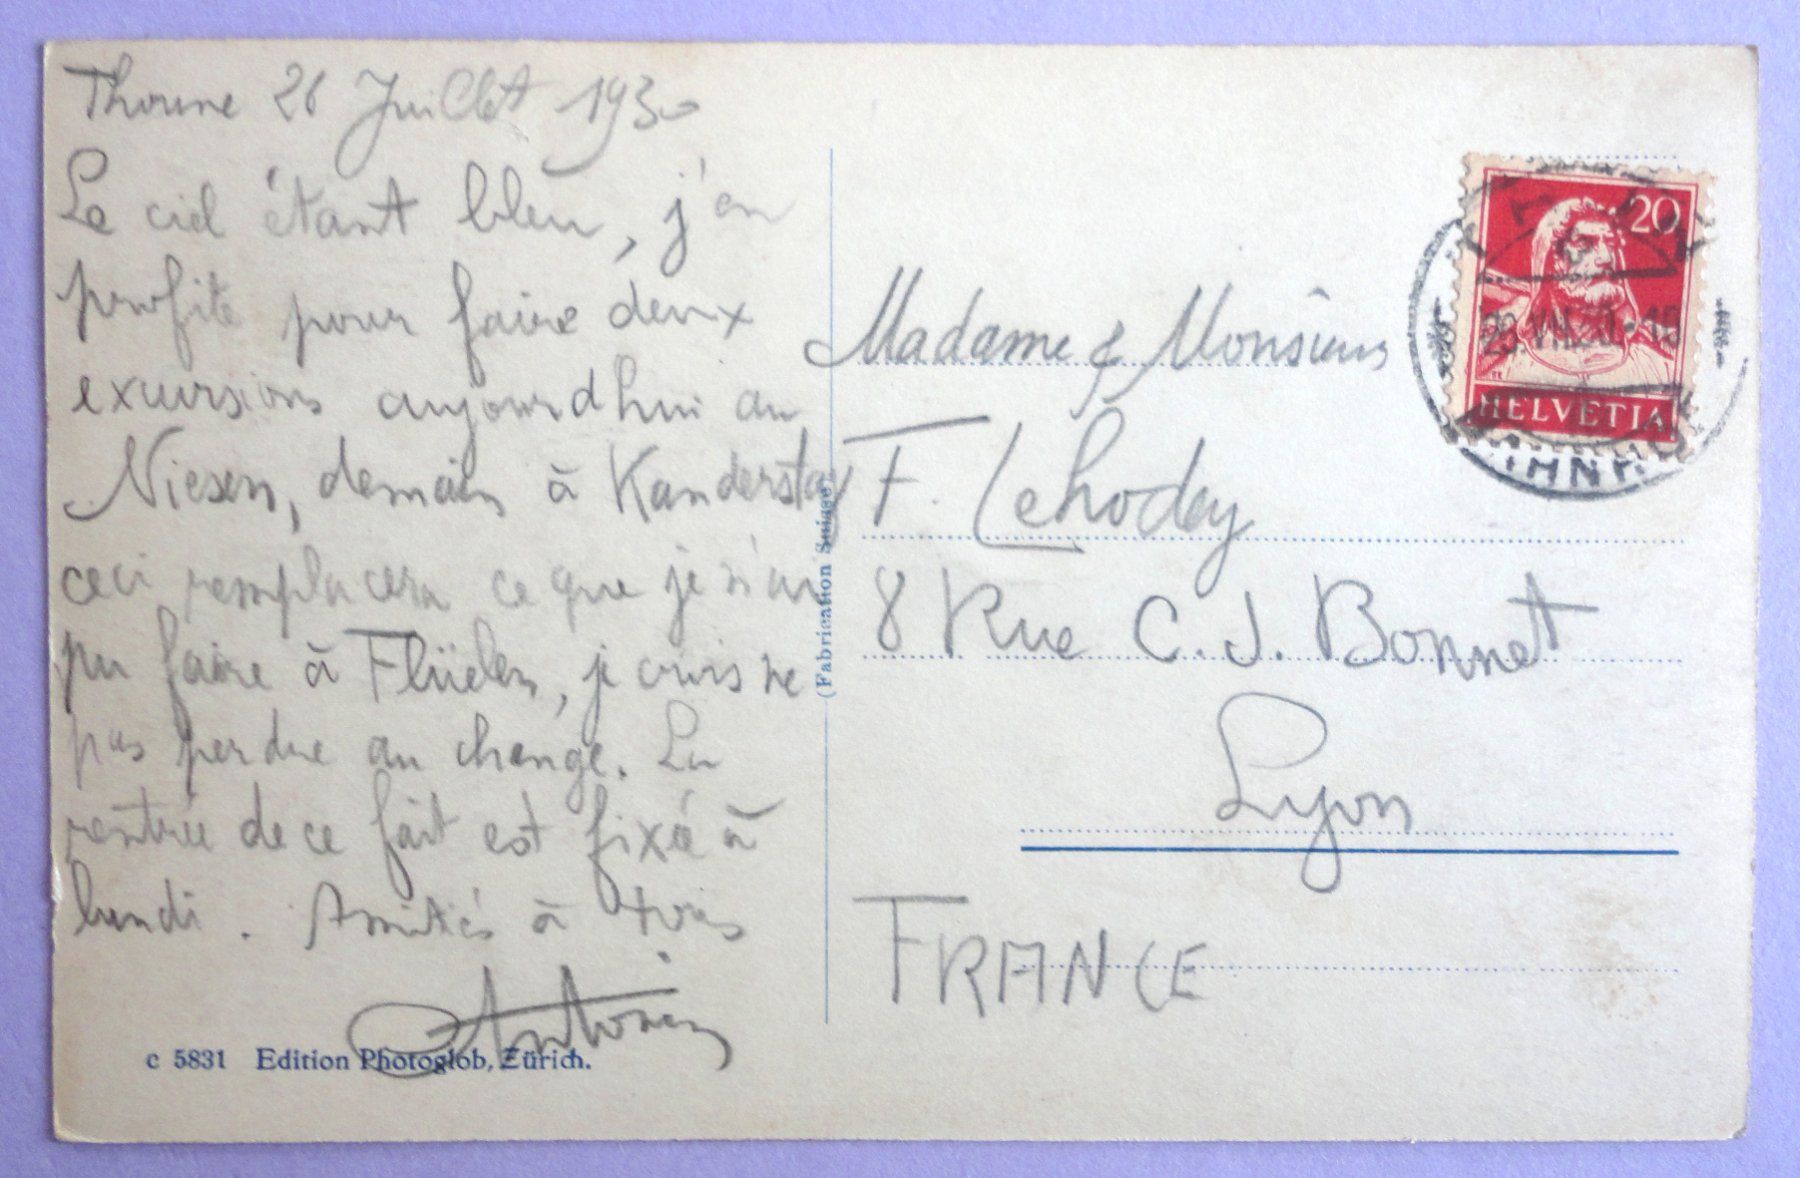 Thoune 26 Juillet 1930
Le ciel étant bleu, j'en
profite pour faire deux
excursions aujourd'hui au
Niesen, demain à Kandersteg
ceci remplacera ce que je n'ai
pu faire à Flüelen, je crois ne
pas perdre au change. La
rentrée de ce fait est fixée à
lundi. Amitiés à tous
Antonin
c 5831 Edition Photoglob, Zürich.
(Fabrication Suisse)
Madame & Monsieur
F. Lehoday
8 Rue C. J. Bonnet
Lyon
FRANCE
20
HELVETIA